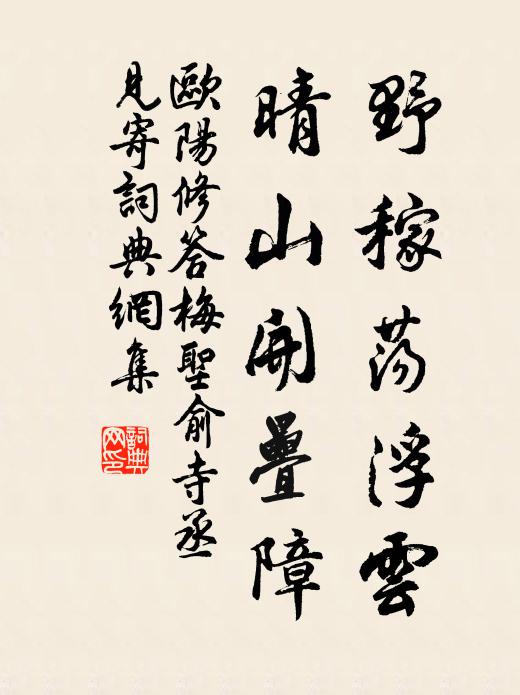 野稼荡浮雲
晴山開疊障
歐陽修答梅聖俞寺丞
見寄詞典網集
詞典网印